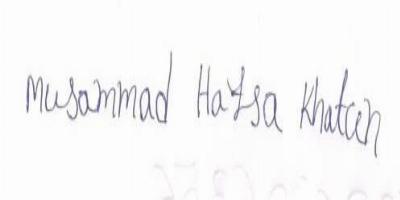 Musammad Hafsa Khatun